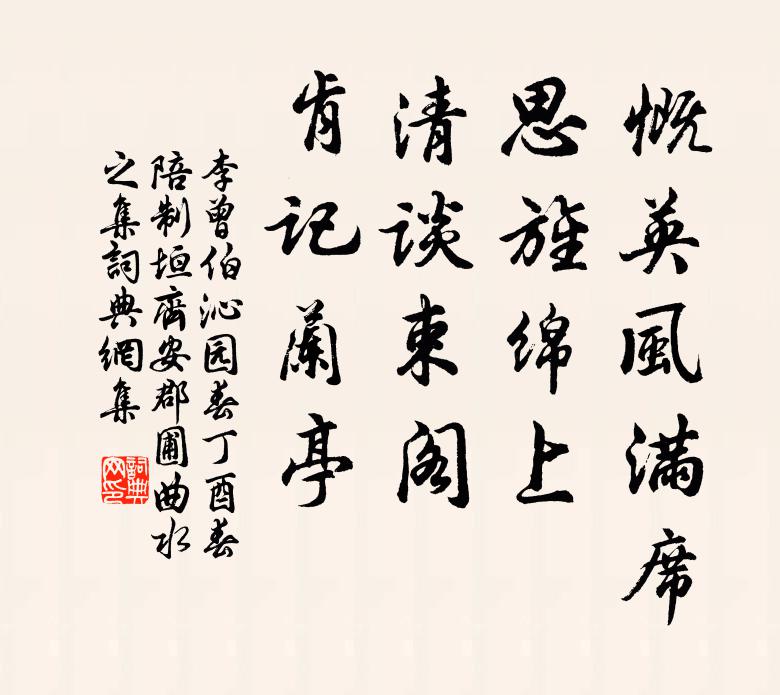 慨英風滿席
思旌綿上
清談東閣
肯記蘭亭
李曾伯沁园春丁酉春
陪制垣齊安郡圃曲水
之集詞典網集
詞典网印